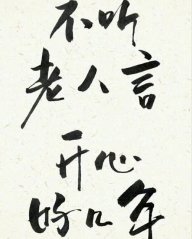 不听
老人言
开心
好几年